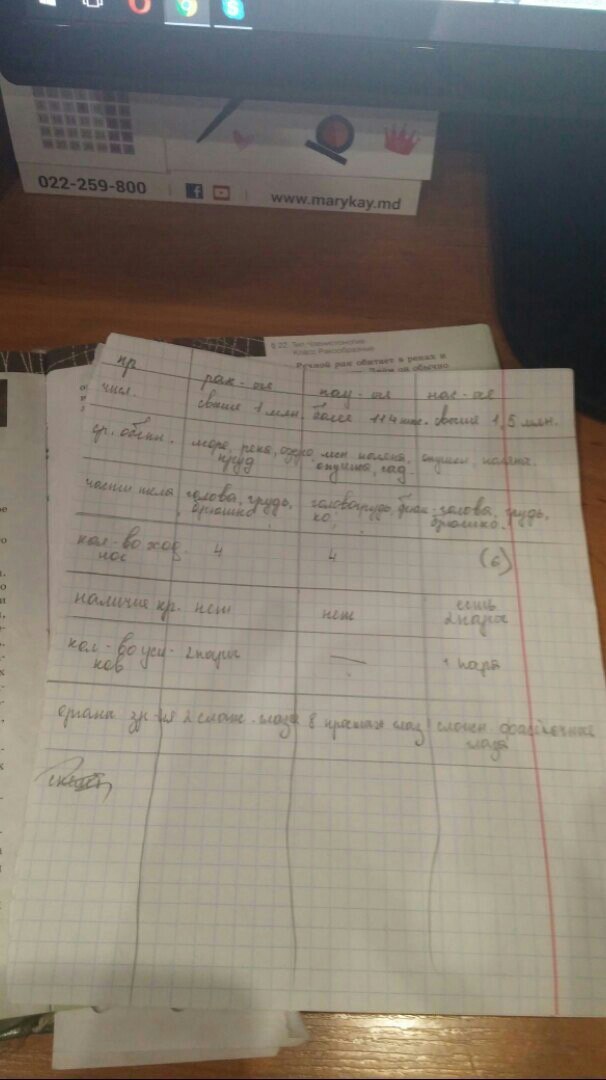 022-259-800
www.marykay.md
§ 22. Тип Членистоногие
Класс Ракообразные
Речной рак обитает в реках и
он обычно
пр
рак-ые
пау-ые
нас-ые
числ.
свыше 1 млн.
более 114 тыс.
свыше 1,5 млн.
ср. обит.
море, река, озеро,
пруд
поляна,
опушка, сад
опушки, поляна.
части тела
голова, грудь,
брюшко
головогрудь, брюш-
ко,
голова, грудь,
брюшко.
кол-во ход.
ног
4
4
(6)
наличие кр.
нет
нет
есть
2 пары
кол-во уси-
ков
2 пары
—
1 пара
органы зр-ия
2 слож. глаза
8 простых глаз
сложн. фасеточные
глаза